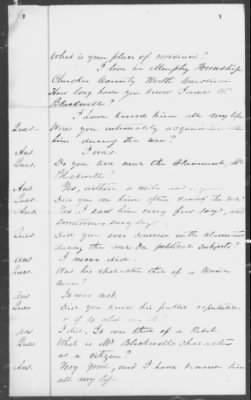 What is your place of residence?
I live in Murphy Township
Cherokee County North Carolina
How long have you known
Blackwell?
I have known him all my life
Ques. Were you intimately acquainted with
him during the war?
Ans. I was
Ques. Do you live near the Claimant, Mr
Blackwell?
Ans Yes, within a mile and
Ques. Did you see him often during the war?
Ans. Yes I saw him every few days, and
sometimes every day.
Ques. Did you ever converse with claimant
during the war on political subjects?
Ans I never did.
Ques. Was his character that of a Union
man?
Ans It was not.
Ques Did you know his public reputation
Ans I did, It was that of a Rebel.
Ques. What is Mr Blackwells character
as a citizen?
Ans. Very good, and I have known him
all my life